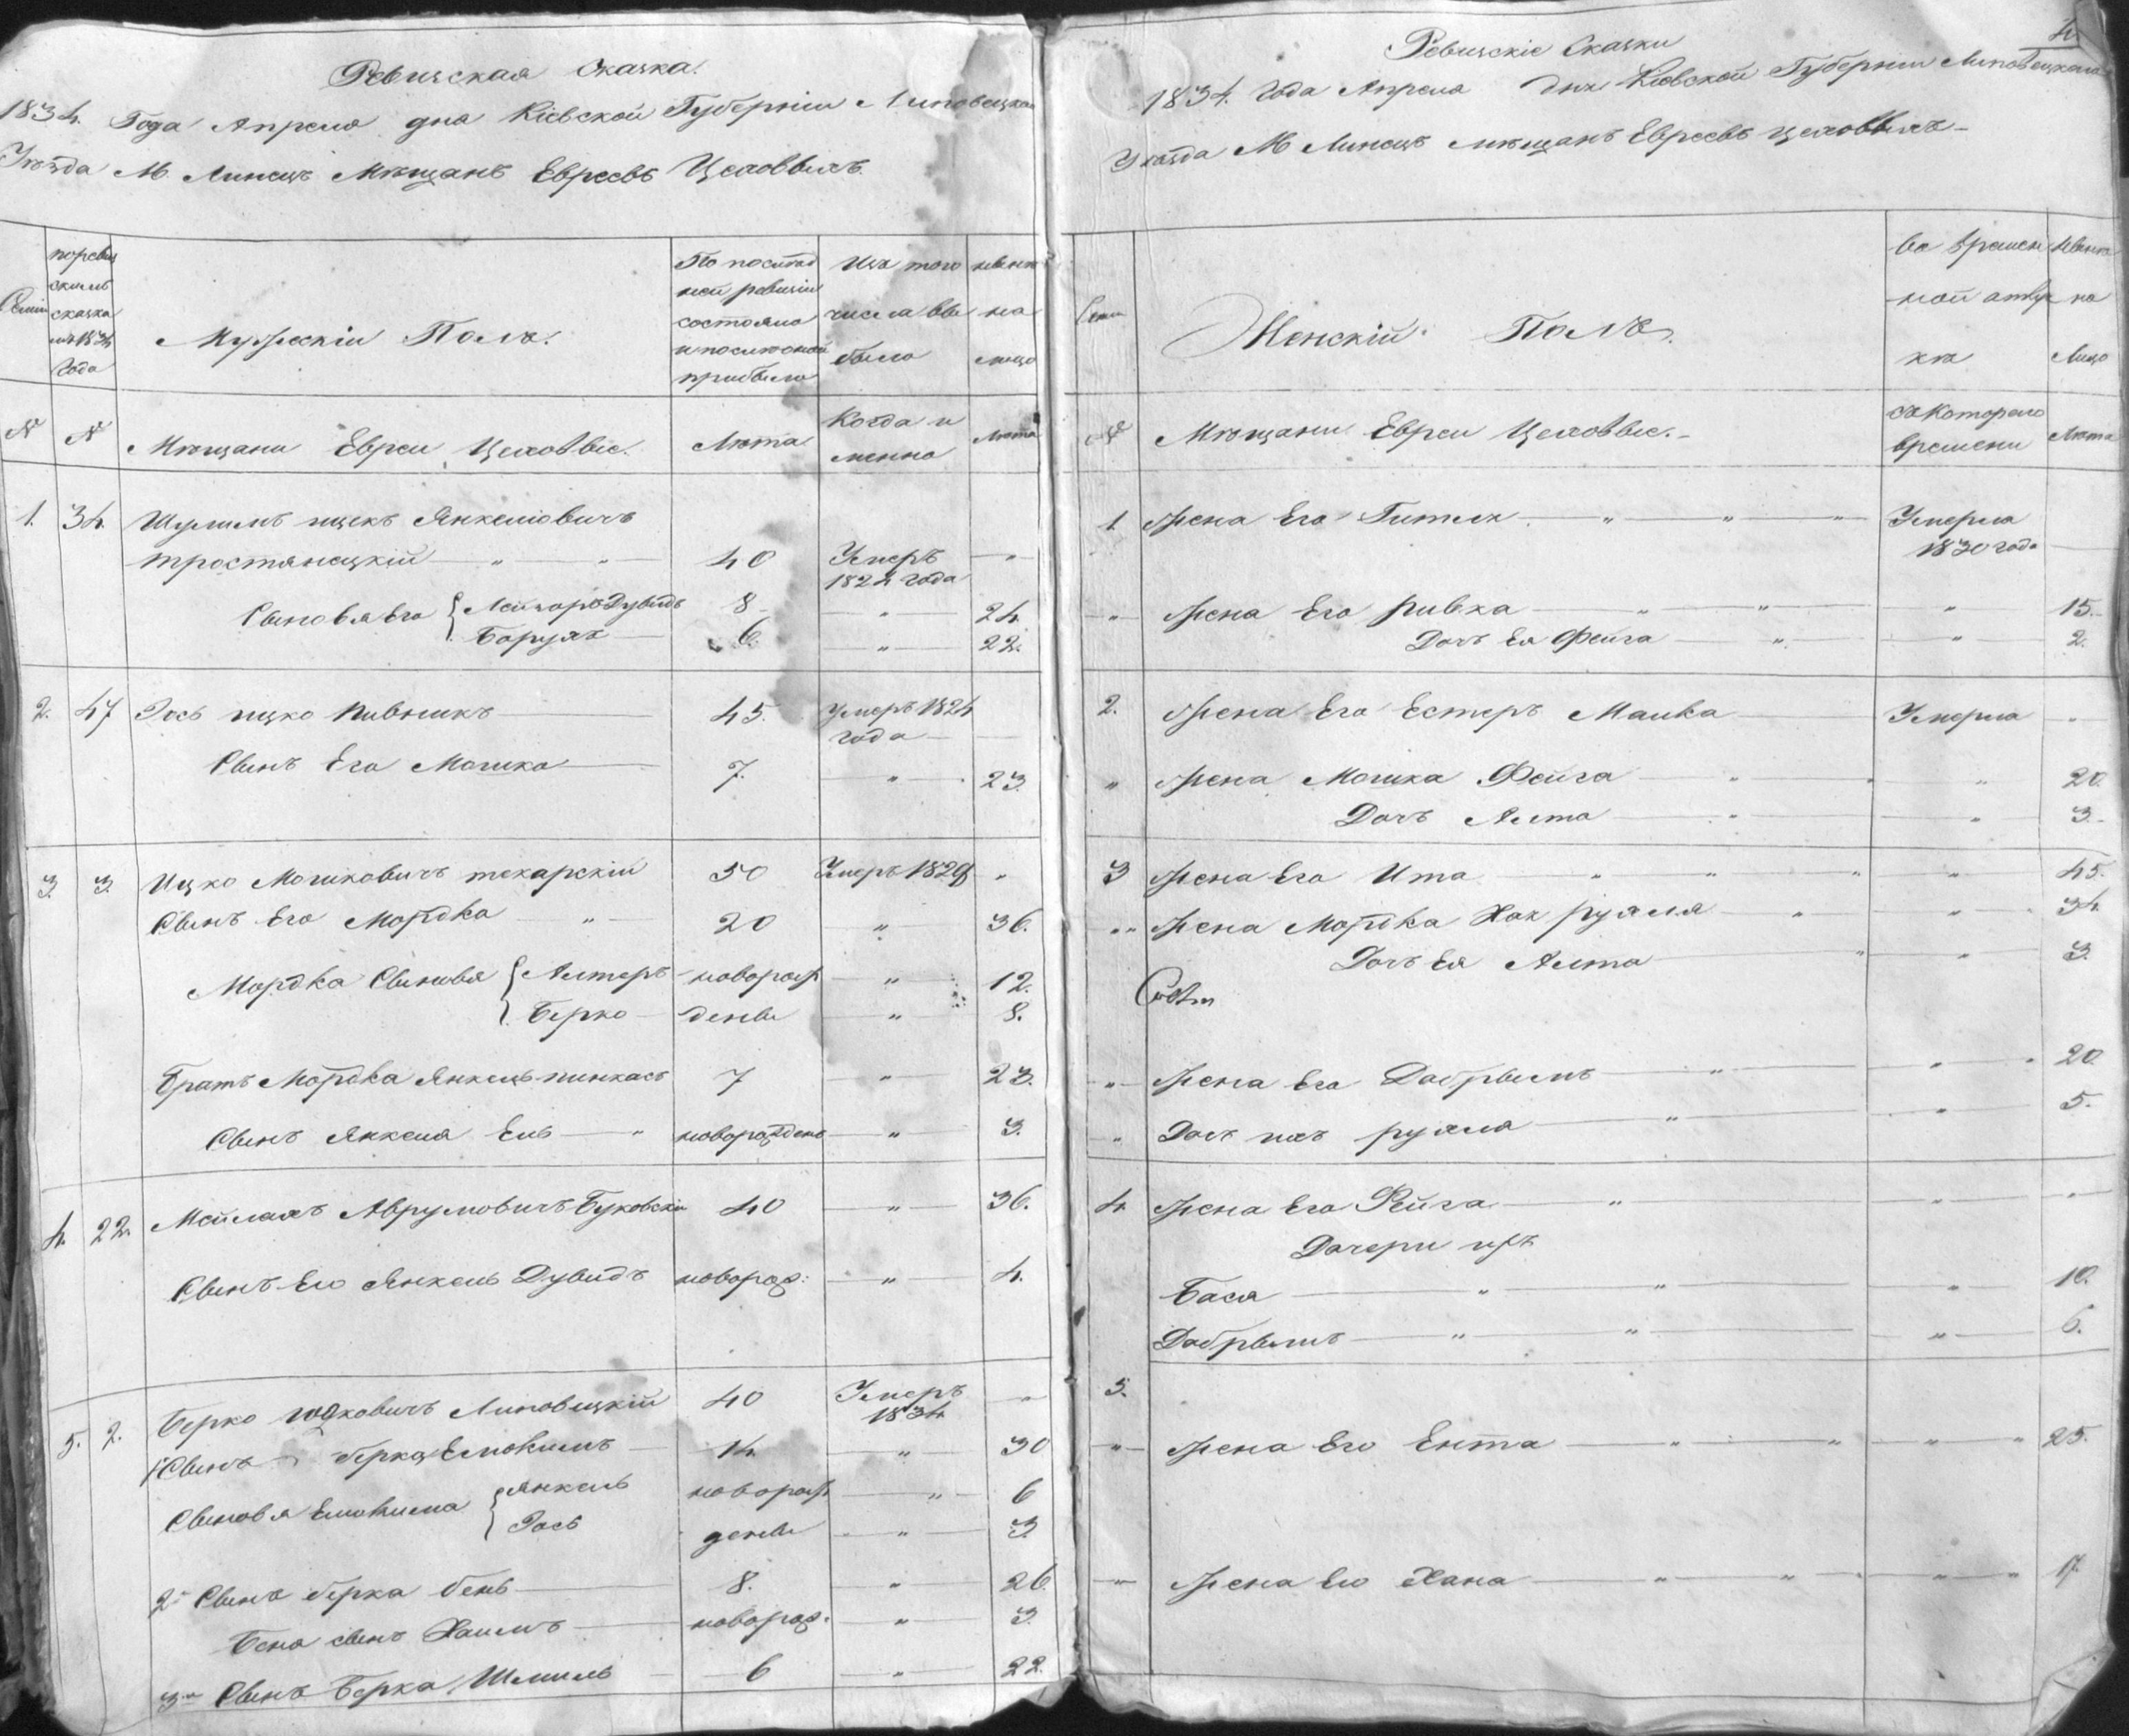 Ревизская Сказка.
1834. Года Апреля дня Кіевской Губерніи Липовецкаго
Уѣзда М. Линецъ Мѣщанъ Евреевъ Цеховыхъ
Семьи
поревизскимъ сказкамъ 1834 Года
Мужескій Полъ.
По последней ревизіи состояло и после оной прибыло
Изъ того числа выбыло
ныне на лицо
№ № Мѣщани Евреи Цеховые. Лѣта Когда именно Лѣта
1. 34. Шулимъ ицекъ Янкеліовичъ
тростянецкій — " — " — 40 Умеръ 1824 года — "
Сыновья Его { Лейзоръ Дувидъ 8 — " — 24.
Борухъ — 6. — " — 22.
2. 47 Іось ицко Пивникъ — 45. Умеръ 1824 года —
Сынъ Его Мошко — 7. — " — 23.
3. 3. Ицко Мошковичъ токарскій 50 Умеръ 1829 "
Сынъ Его Мордко — " — 20 " 36.
Мордка Сыновья { Алтеръ новорож — " — 12.
Берко — денне — " — 8.
Братъ Мордка Янкель пинкасъ 7 — " — 23.
Сынъ Янкеля Ель — " новорожденъ — " — 3.
4. 22. Мейлахъ Аврумовичъ Буковскій 40 — " — 36.
Сынъ Его Янкель Дувидъ новорож: — " — 4.
5. 2. Берко Юдковичъ Липовецкій 40 Умеръ 1834 "
1й Сынъ Берка Елюкимъ 14. " 30
Сыновья Елюкима { Янкель новорож — " — 6
Іось денне — " — 3.
2й Сынъ берка бень — 8. — " — 26.
Бена сынъ Хаимъ — новорож. — " — 3.
3й Сынъ Берка Шмиль — 6 — " — 22.
4
Ревизскіе Сказки
1834. Года Апреля дня Кіовской Губерніи Липовецкаго
Уѣзда М Линецъ мѣщанъ Евреевъ цеховыхъ —
Семьи
Женскій Полъ.
Во временной отлучке
Ныне на Лицо
№ Мѣщани Евреи Цеховые. — съ Котораго времени Лѣта
1. Жена Его Гителя — " — " — " Умерла 1830 года —
" Жена Его Ривка — " — " — " 15.
Дочь Ея Фейга — " — " 2.
2. Жена Его Естеръ Малка — Умерла "
" Жена Мошка Фейга — " — " 20.
Дочь Алта — " — " 3.
3 Жена Его Ита — " — " — " 45.
" Жена Мордка Хая рухля — " — " — 34.
Дочь Ея Алта — " — " 3.
" Жена Его Добрышъ — " — " 20.
" Дочь ихъ рухля — " — " 5.
4. Жена Его Фейга — " — " "
Дочери ихъ
Бася — " — " — " 10.
Добрышъ — " — " — " 6.
5.
" Жена Его Ента — " — " — " 25.
" Жена Его Хана — " — " — " 17.